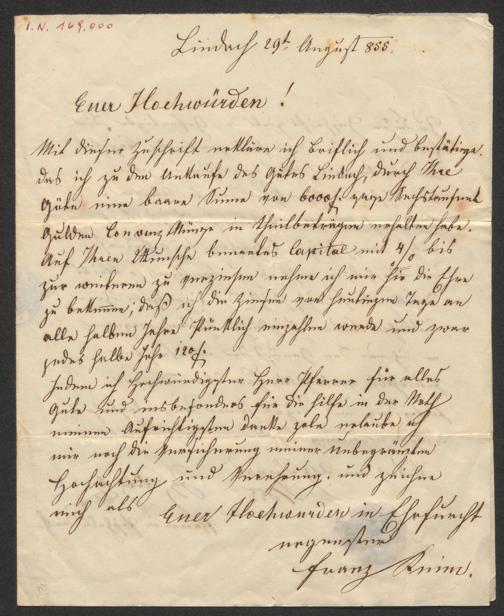 I.N. 169.000
Lindach 29t August 855.
Euer Hochwürden!
Mit dieser Zuschrift erkläre ich brieflich und bestättige
das ich zu dem Ankaufe des Gutes Lindach, durch Ihre
Güte eine baare Sume von 6000f sage Sechstausend
Gulden Convenz Münze in theilbeträgen erhalten habe.
Auf Ihren Wunsche benantes Capital mit 4% bis
zur weiteren zu verzinsen nehme ich mir hie die Ehre
zu bekennen, daß ich die Zinsen vom heutigen Tage an
alle halben Jahre Pünktlich einzahlen werde und zwar
jedes halbe Jahr 120f.
Indem ich Hochwürdigster Herr Pfarrer für alles
Gute und insbesonders für die hilfe in der Noth
meinen Aufrichtigsten Danke zole erlaube ich
mir noch die Versicherung meiner unbegränzten
Hochachtung und Verehrung, und zeichne
mich als Euer Hochwürden in Ehrfurcht
ergenster
Franz